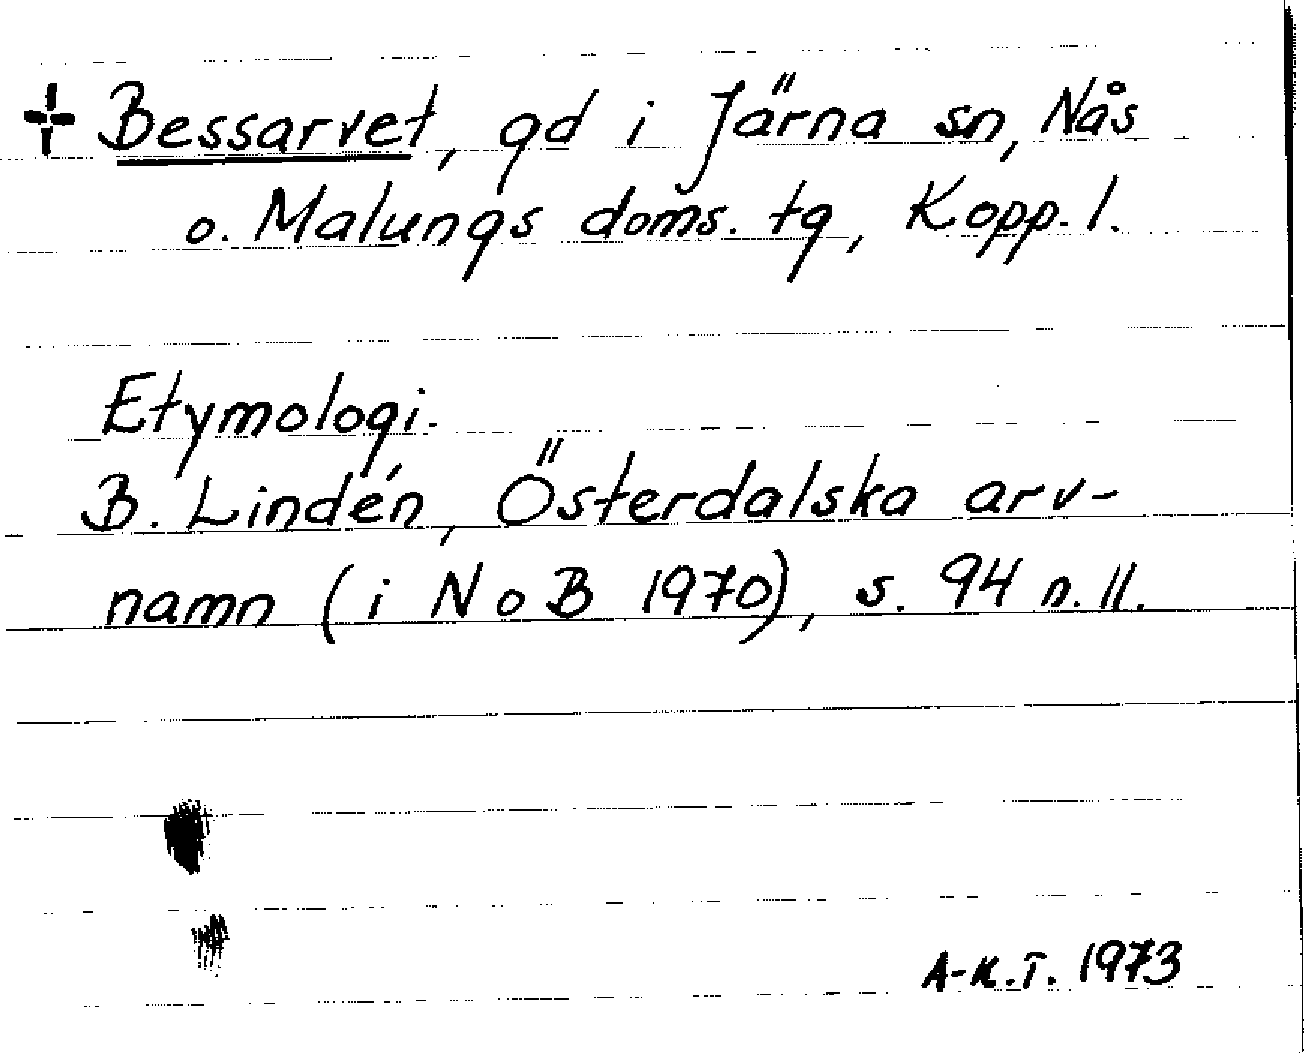 + Bessarvet, gd i Järna sn, Nås
o. Malungs doms. tg, Kopp. l.
Etymologi.
B. Lindén, Österdalska arv-
namn (i NoB 1970), s. 94 n. 11.
A-K.T. 1973